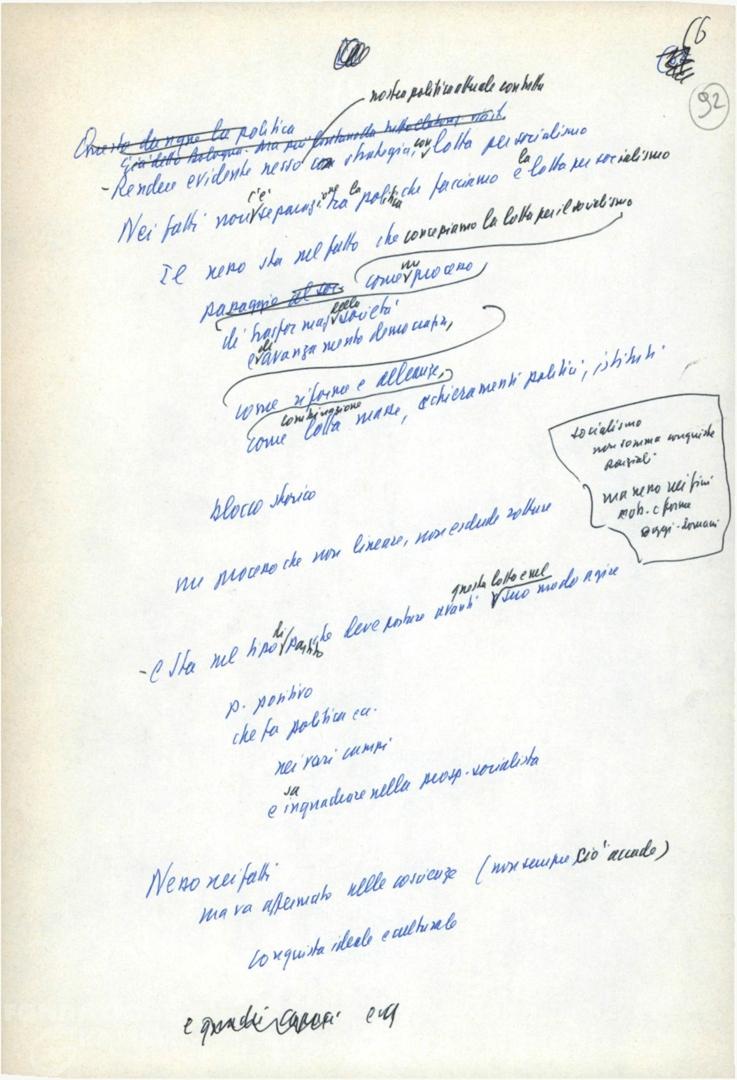 6
92
nostra politica attuale con lotta
Questo dunque la politica
Già detto Bologna. Ma poi
- Rendere evidente nesso strategia, con lotta per socialismo
Nei fatti non c'è separazione tra la politica che facciamo e la lotta per socialismo
Il nesso sta nel fatto che concepiamo la lotta per il socialismo
passaggio al soc
come un processo
di trasformaz della società
e di avanzamento democrazia,
come riforme e alleanze,
combinazione
come lotta masse, schieramenti politici, istituti
socialismo
non somma conquiste
parziali
ma nesso nei fini
mob. e forme
oggi-domani
blocco storico
un processo che non lineare, non esclude rotture
- e sta nel tipo di partito che deve portare avanti questa lotta e nel suo modo agire
p. positivo
che fa politica ec.
nei vari campi
e sa inquadrare nella prosp. socialista
Nesso nei fatti
ma va affermato nelle coscienze (non sempre ciò accade)
conquista ideale e culturale
e quindi